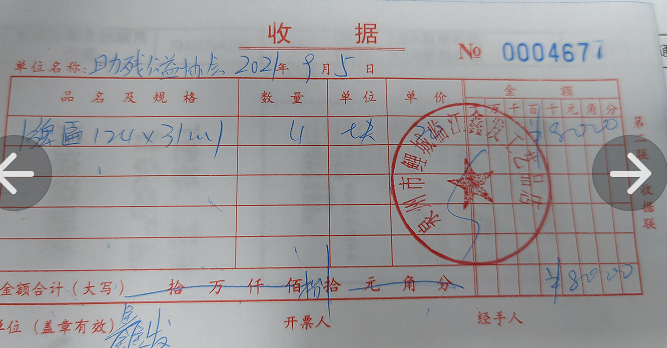 收 据
№ 0004677
单位名称：助残公益协会 2021年 9月 5日
品名及规格 数量 单位 单价 金额
十万千百十元角分
牌匾 124×31cm 4 块 ¥80.00
泉州市鲤城临江鑫发工艺品店
第二联 收据联
金额合计（大写） 拾 万 仟 佰捌拾 元 角 分 ¥80.00
单位（盖章有效） 开票人 经手人